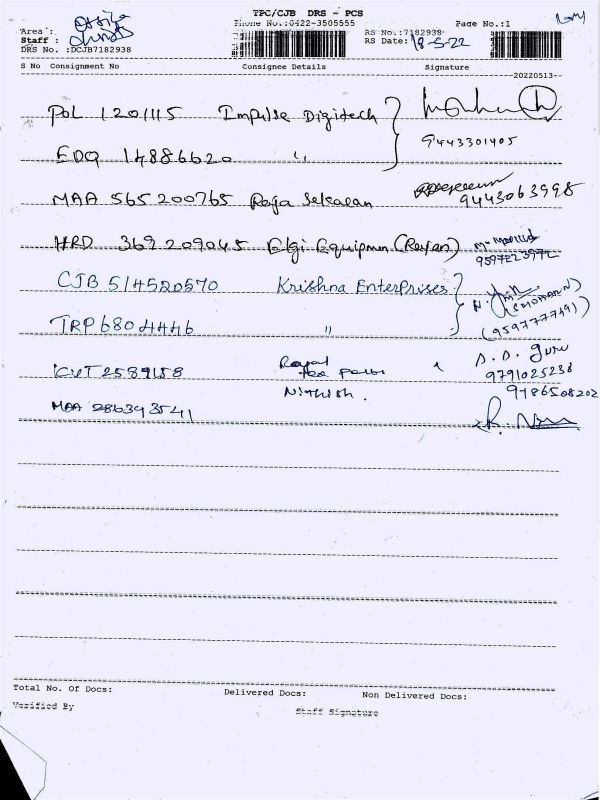 TPC/CJB DRS - PCS
Area :
Phone No.:0422-3505555
Page No.:1
Staff :
RS No.:7182938
DRS No. :DCJB7182938
RS Date: 18-5-22
S No Consignment No Consignee Details Signature
20220513
POL 1201115 Impulse Digitech
9443301405
EDQ 14886620 "
MAA 565200765 Raja Sekaran
9443063998
HRD 369209045 Elgi Equipmen (Rayan)
CJB 514520570 Krishna Enterprises
(9597777491)
TRP 6804446 "
D.D. Guru
2589158 Royal
9791025238
Nithish.
9786508202
MAA 286393541
Total No. Of Docs: Delivered Docs: Non Delivered Docs:
Verified By Staff Signature